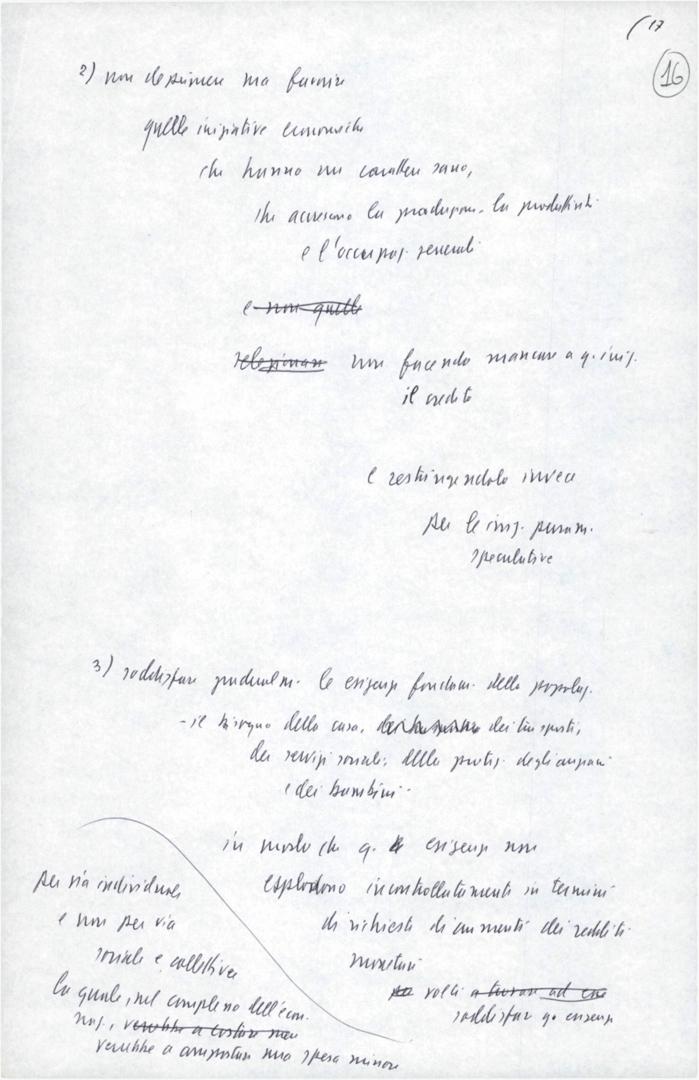 17
16
2) non deprimere ma favorire
quelle iniziative economiche
che hanno un carattere sano,
che accrescono la produzion. la produttività
e l'occupaz. generali
e non quelle
selezionare non facendo mancare a q. iniz.
il credito
e restringendolo invece
per le iniz. param.
speculative
3) soddisfare gradualm. le esigenze fondam. della popolaz.
- il bisogno della casa, dei trasporti,
dei servizi sociali, della protez. degli anziani
e dei bambini -
in modo che q. esigenze non
esplodono incontrollatamente in termini
di richieste di aumenti dei redditi
monetari
volti a
soddisfare q. esigenze
per via individuale
e non per via
sociale e collettiva
la quale, nel complesso dell'econ.
naz., verrebbe a costare meno
verrebbe a comportare una spesa minore